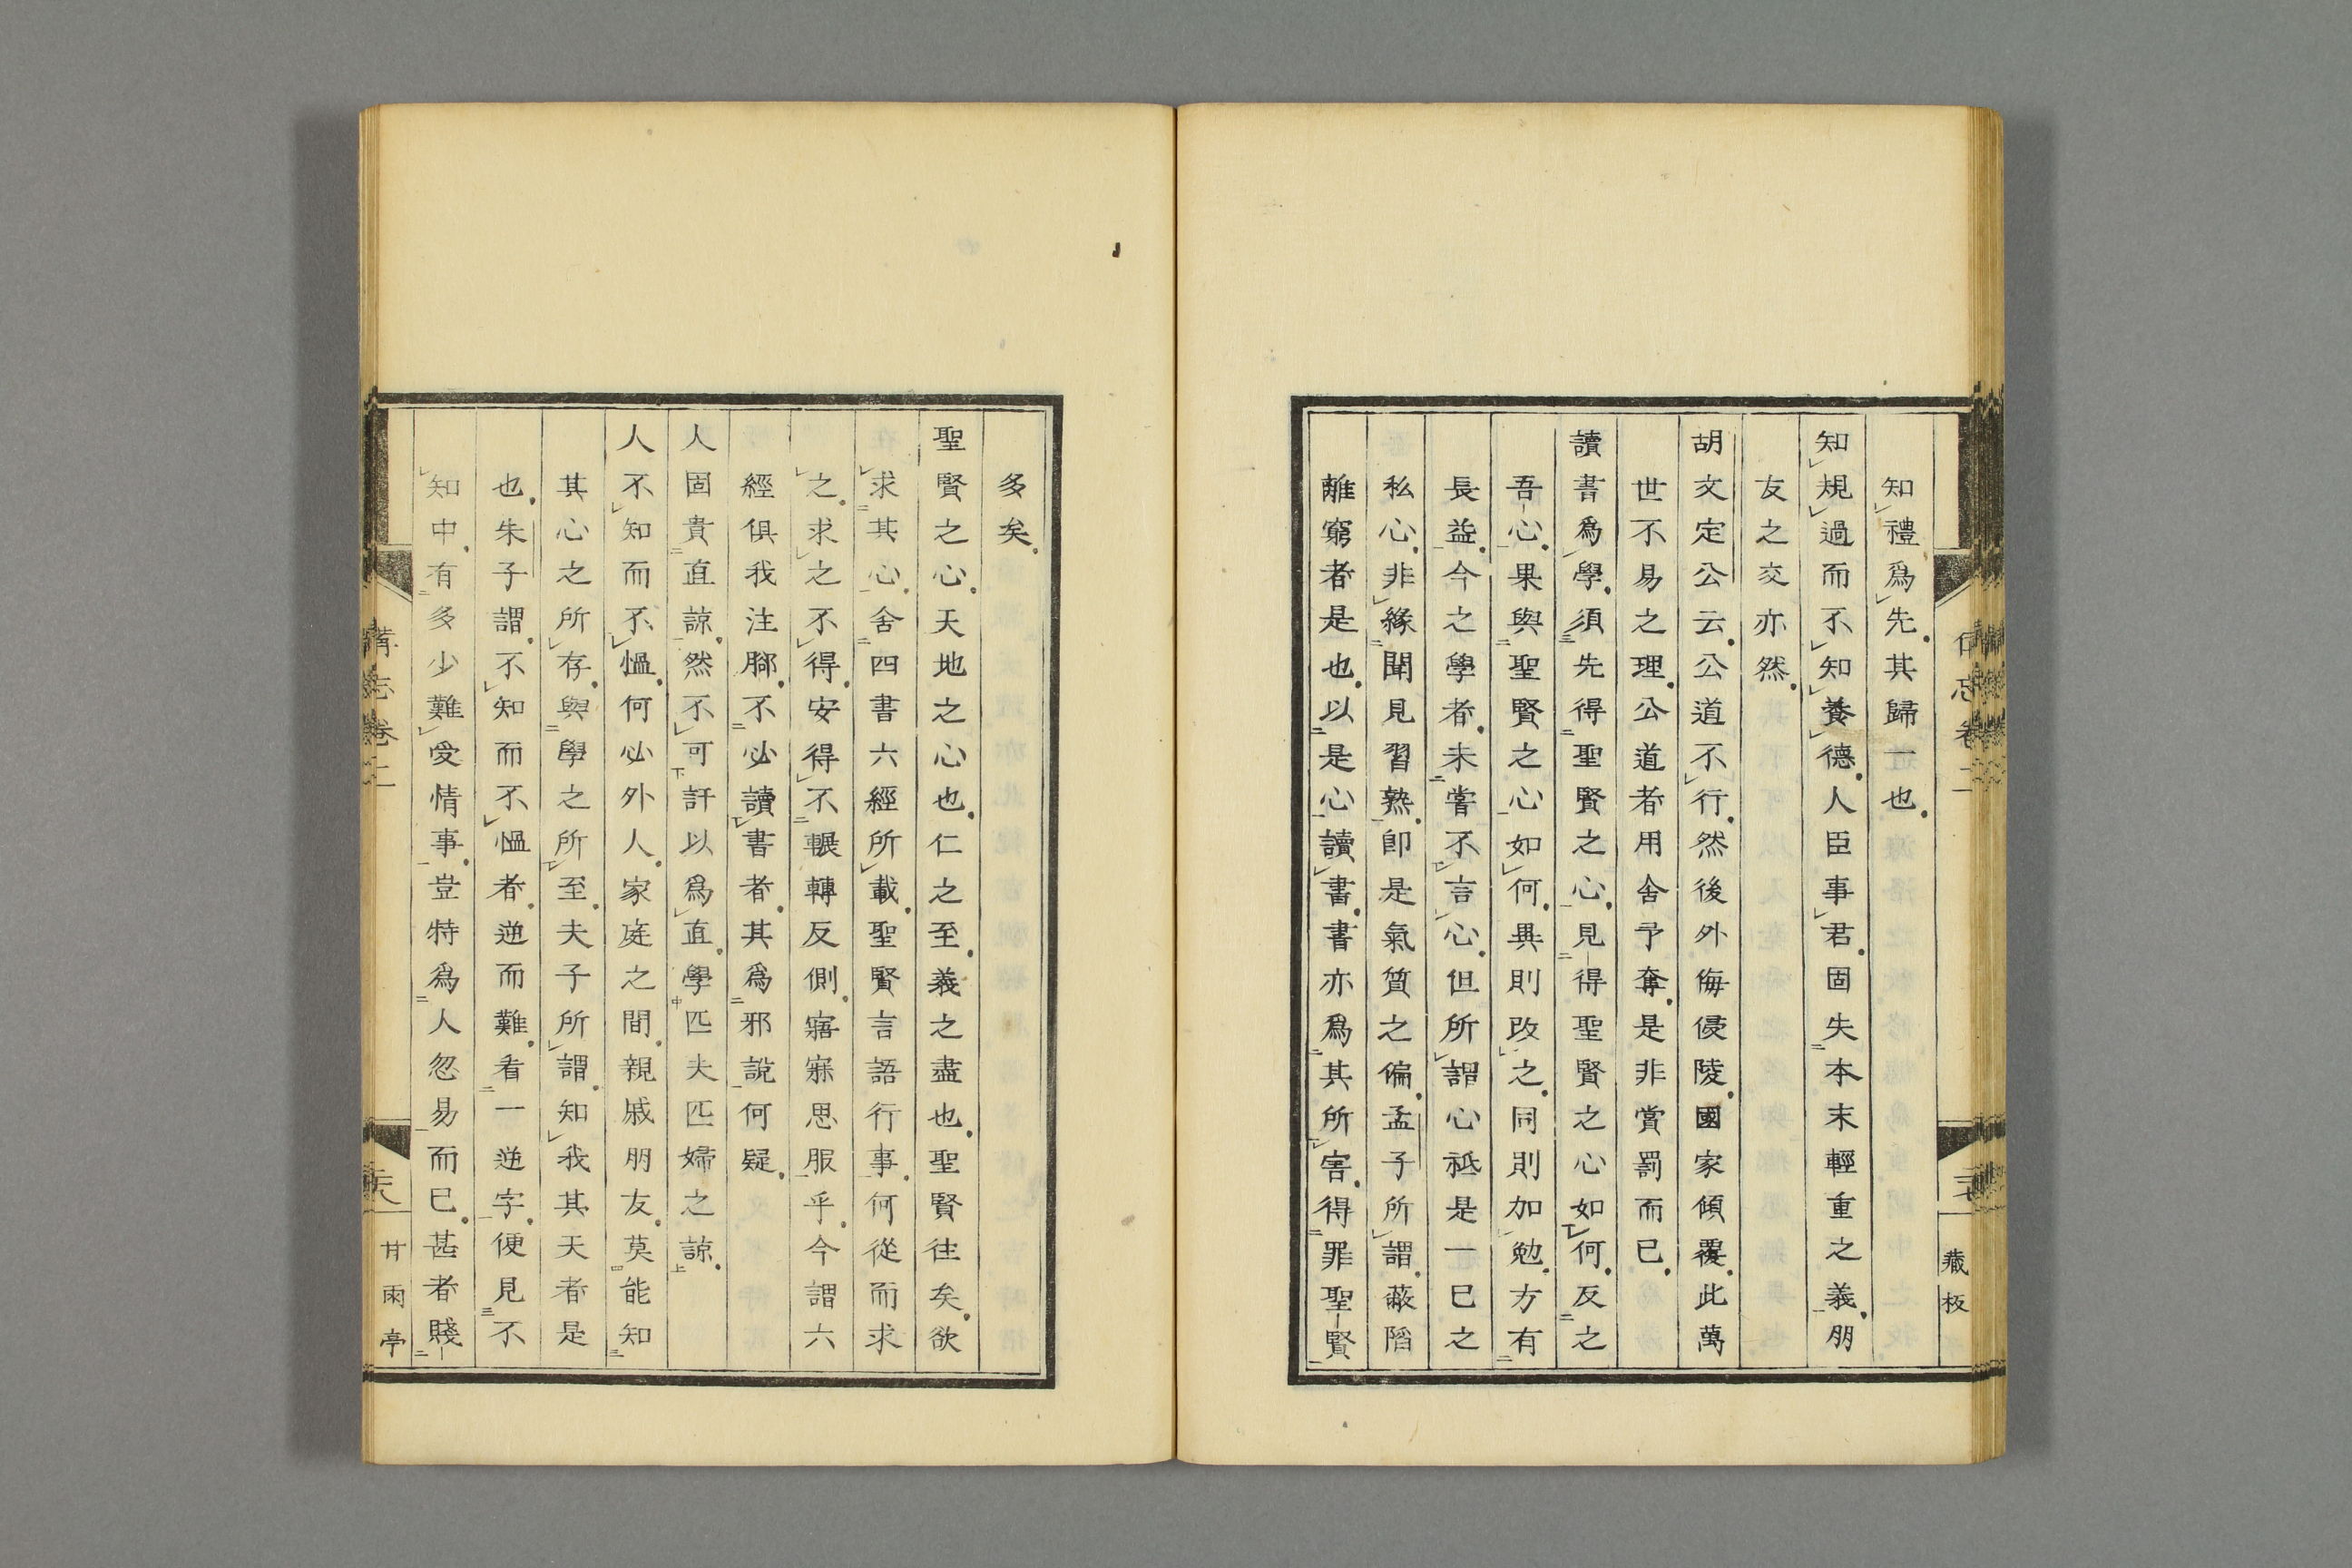 知禮爲先其歸一也
知規過而不知養德人臣事君固失本末輕重之義朋
友之交亦然
胡文定公云公道不行然後外侮侵陵國家傾覆此萬
世不易之理公道者用舍予奪是非賞罰而已
讀書爲學須先得聖賢之心見得聖賢之心如何反之
吾心果與聖賢之心如何異則改之同則加勉方有
長益今之學者未嘗不言心但所謂心祗是一已之
私心非緣聞見習熟卽是氣質之偏孟子所謂蔽陷
離窮者是也以是心讀書書亦爲其所害得罪聖賢
多矣
聖賢之心天地之心也仁之至義之盡也聖賢往矣欲
求其心舍四書六經所載聖賢言語行事何從而求
之求之不得安得不輾轉反側寤寐思服乎今謂六
經俱我注腳不必讀書者其爲邪說何疑
人固貴直諒然不可訐以爲直學匹夫匹婦之諒
人不知而不慍何必外人家庭之間親戚朋友莫能知
其心之所存與學之所至夫子所謂知我其天者是
也朱子謂不知而不慍者逆而難看一逆字便見不
知中有多少難受情事豈特爲人忽易而已甚者賤
備忘卷二
二十七
藏板
備忘卷二
二十八
甘雨亭